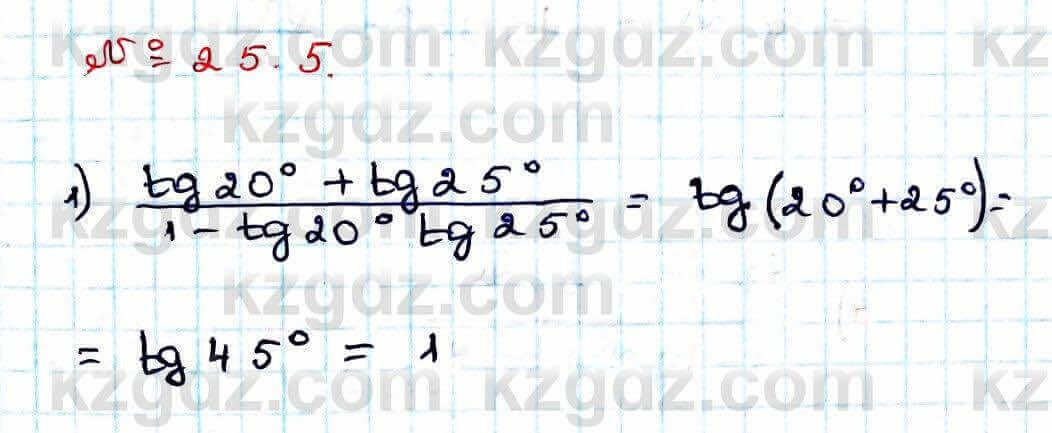 № 25.5.
1) (tg 20° + tg 25°) / (1 - tg 20° tg 25°) = tg (20° + 25°) =
= tg 45° = 1
kzgdz.com kzgdz.com kz
kzgdz.com
kzgdz.com
kzgdz.com kzgdz.com kz